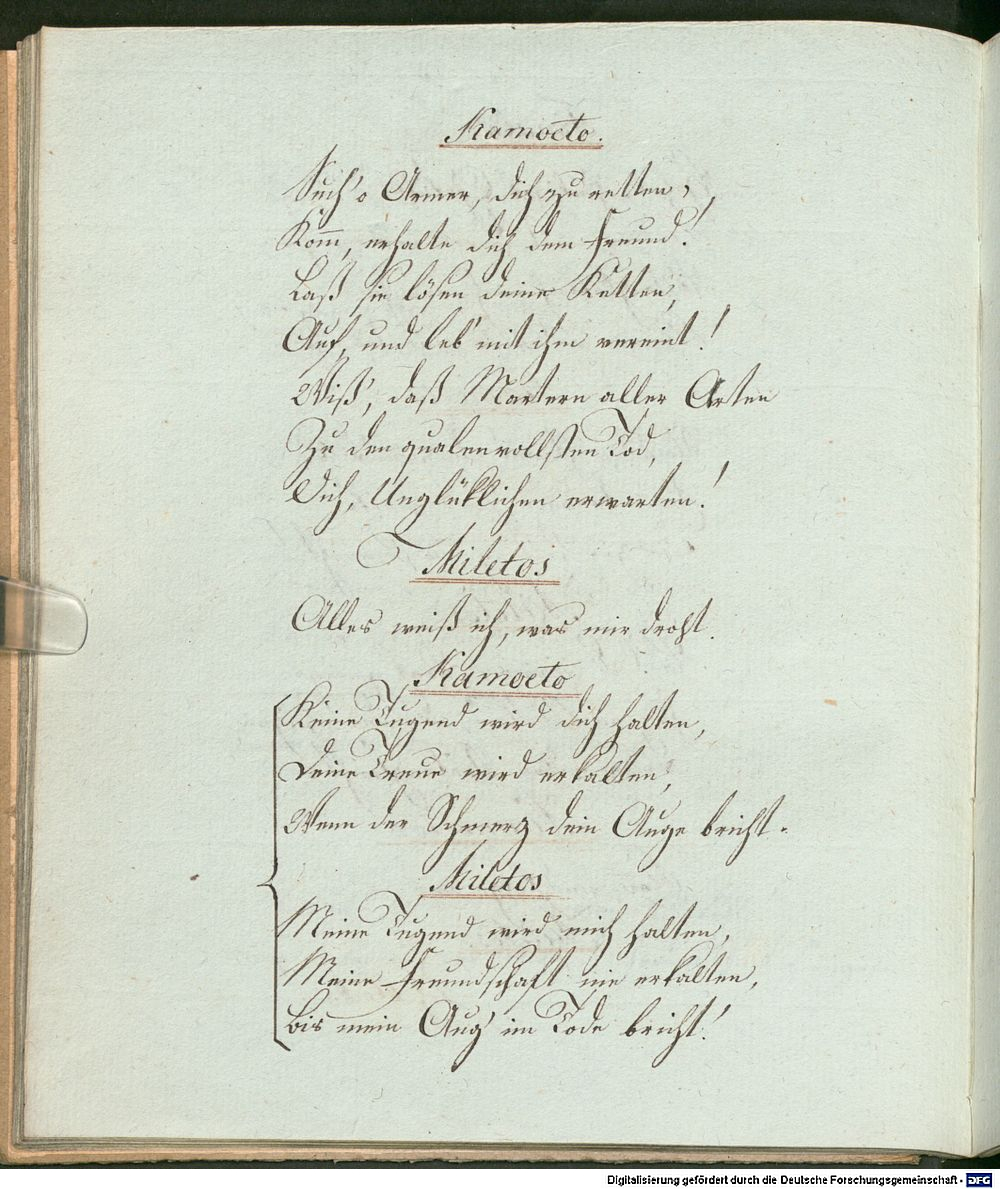 Kamoeto.
Such' o Armer, dich zu retten,
Kom̄, erhalte dich dem Freund!
Laß sie lösen deine Ketten,
Auf, und leb' mit ihm vereint!
Wiß', daß Martern aller Arten
Zu den qualenvollsten Tod,
Dich, Unglüklichen erwarten!
Miletos
Alles weiß ich, was mir droht.
Kamoeto
Keine Tugend wird dich halten,
Deine Treue wird erkalten,
Wenn der Schmerz dein Auge bricht.
Miletos
Meine Tugend wird mich halten,
Meine Freundschaft nie erkalten,
Bis mein Aug' im Tode bricht!
Digitalisierung gefördert durch die Deutsche Forschungsgemeinschaft - DFG